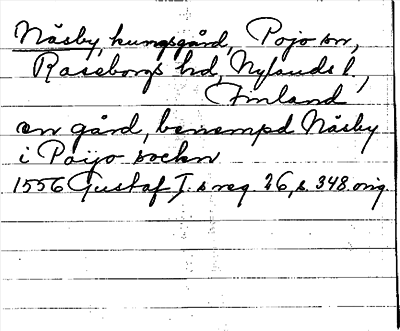 Näsby, kungsgård, Pojo sn,
Raseborgs hd, Nylands l.,
Finland
en gård, benempd Näsby
i Poijo sockn
1556 Gustaf I. s reg. 26, s. 348 orig.